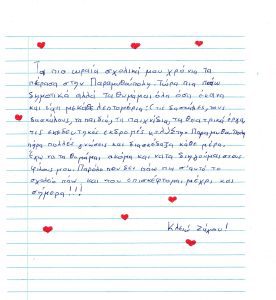 Τα πιο ωραία σχολικά μου χρόνια τα
πέρασα στην Παραμυθούπολη. Τώρα πια πάω
δημοτικό αλλά τα θυμάμαι όλα όσα έκανα
και είχα με κάθε λεπτομέρια: (τις δασκάλες, τους
δασκάλους, τα παιδιά, τα παιχνίδια, τα θεατρικά έργα,
τις εκδρομές Στην Παραμυθούπολη
πήρα πολλές γνώσεις και διασκέδαζα κάθε μέρα.
Έχω να τα θυμάμαι ακόμα και να τα διηγούμαι στους
φίλους μου. Παρόλο που δεν πάω πια σ'αυτό το
σχολείο πάω και το επισκέφτομαι μέχρι και
σήμερα!!!
Κλειώ Ζάμου!